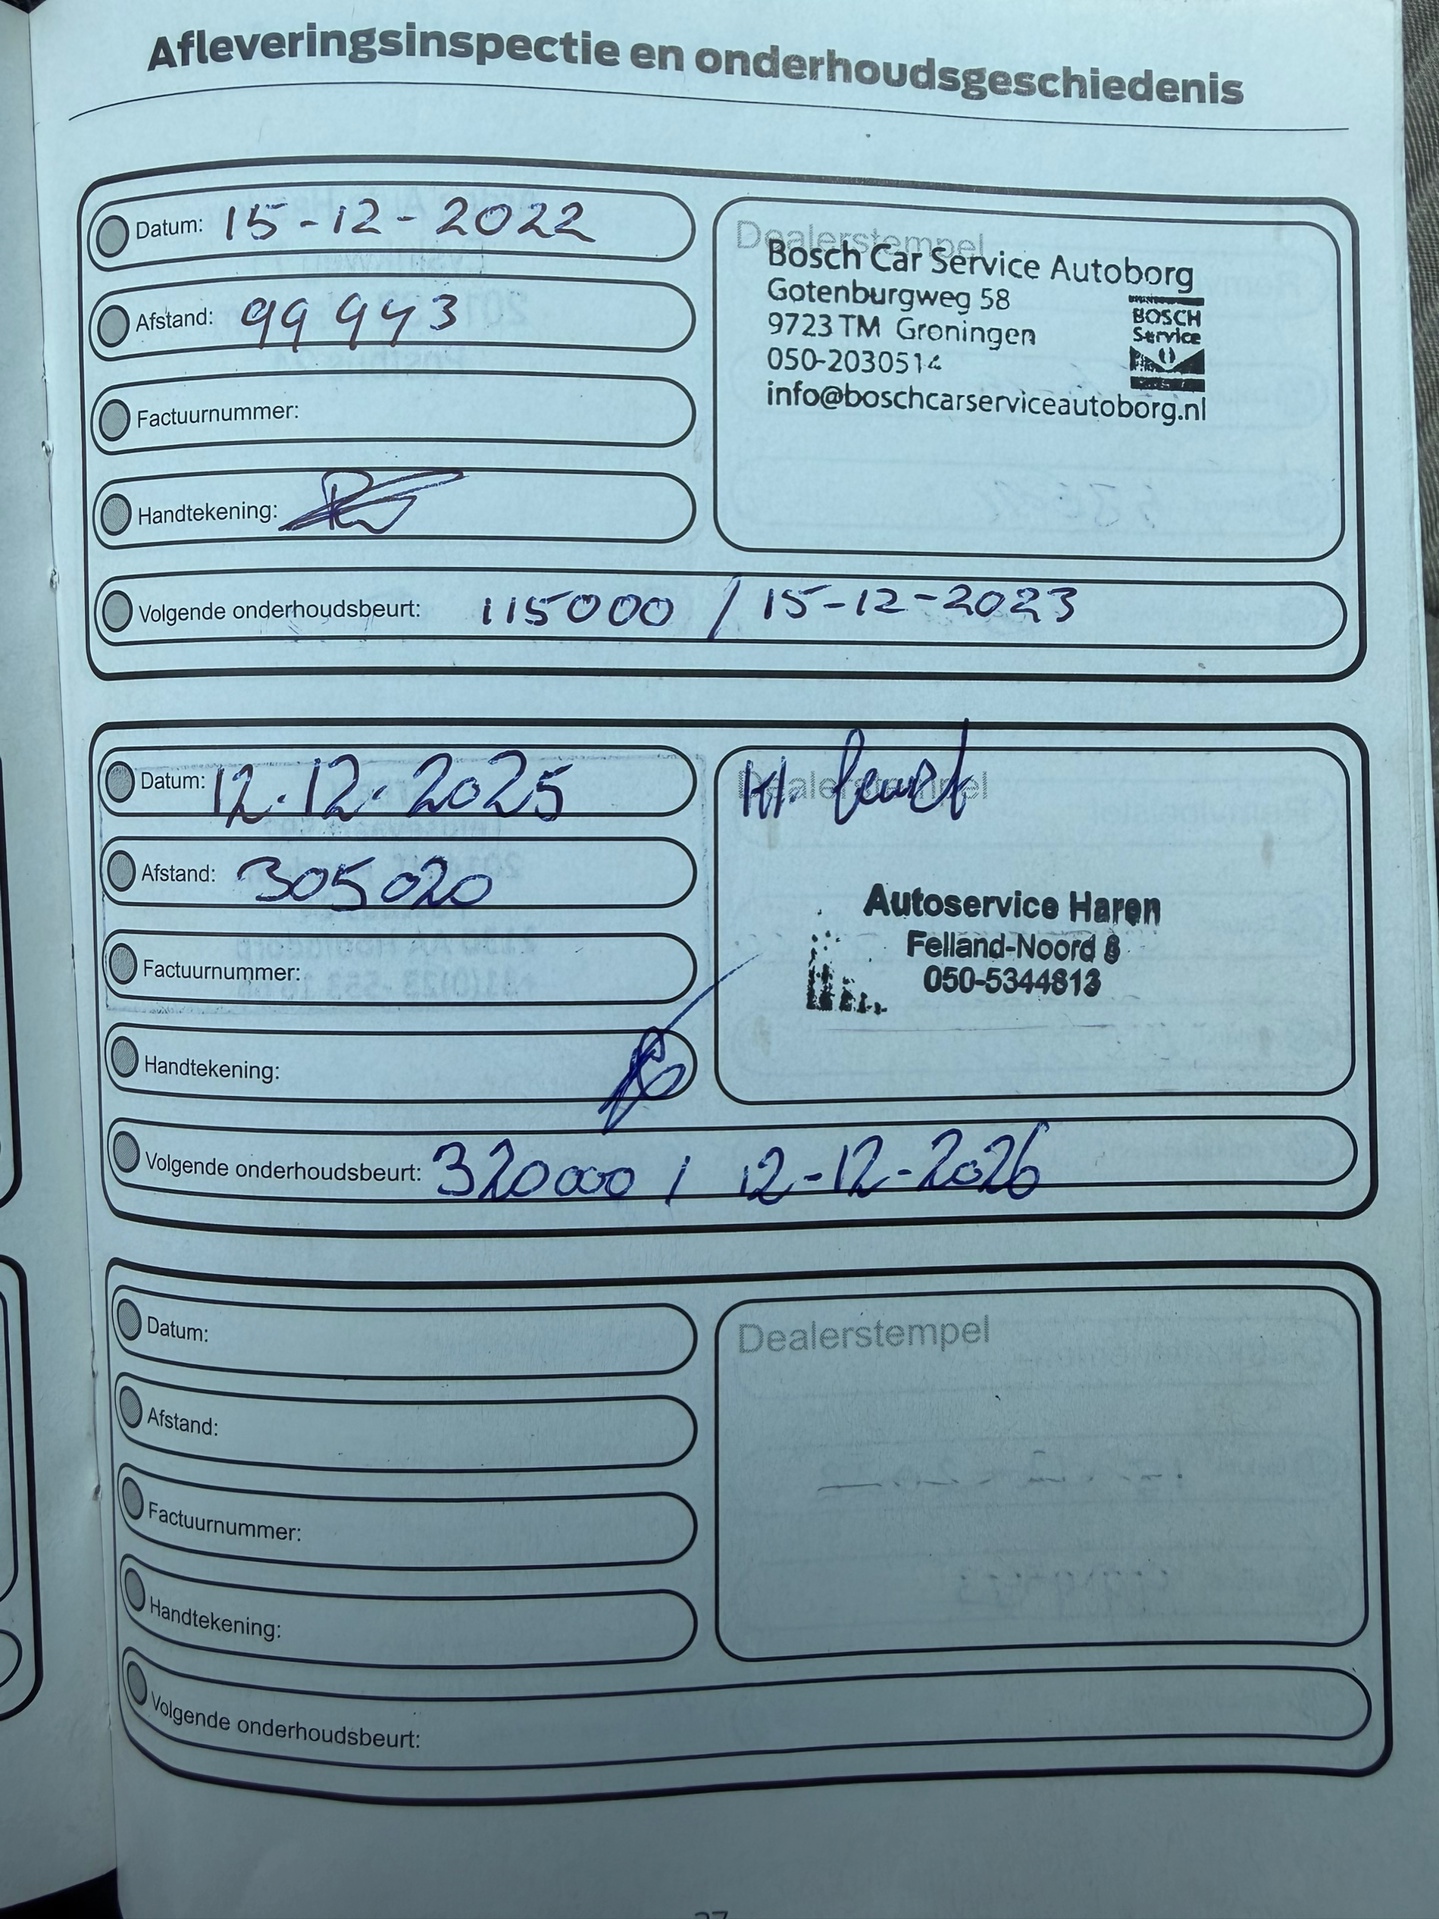 Afleveringsinspectie en onderhoudsgeschiedenis
Datum: 15-12-2022
Afstand: 99943
Factuurnummer:
Handtekening:
Volgende onderhoudsbeurt: 115000 / 15-12-2023
Dealerstempel
Bosch Car Service Autoborg
Gotenburgweg 58
9723 TM Groningen
050-2030514
info@boschcarserviceautoborg.nl
BOSCH
Service
Datum: 12.12.2025
Afstand: 305020
Factuurnummer:
Handtekening:
Volgende onderhoudsbeurt: 320000 / 12-12-2026
Dealerstempel
Kl. beurt
Autoservice Haren
Felland-Noord 8
050-5344813
Datum:
Afstand:
Factuurnummer:
Handtekening:
Volgende onderhoudsbeurt:
Dealerstempel